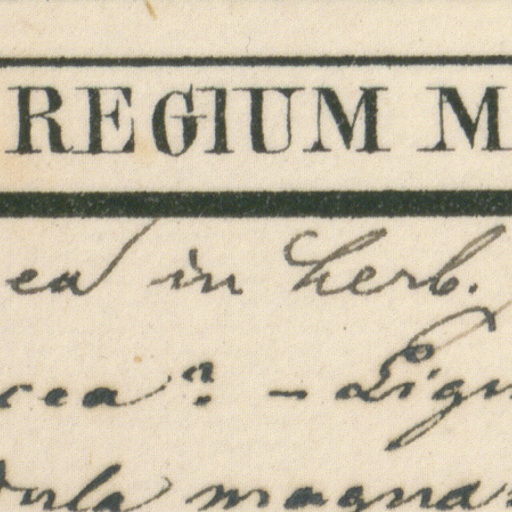 REGIUM M
ea in herb.
cea? – Lign
dula magna